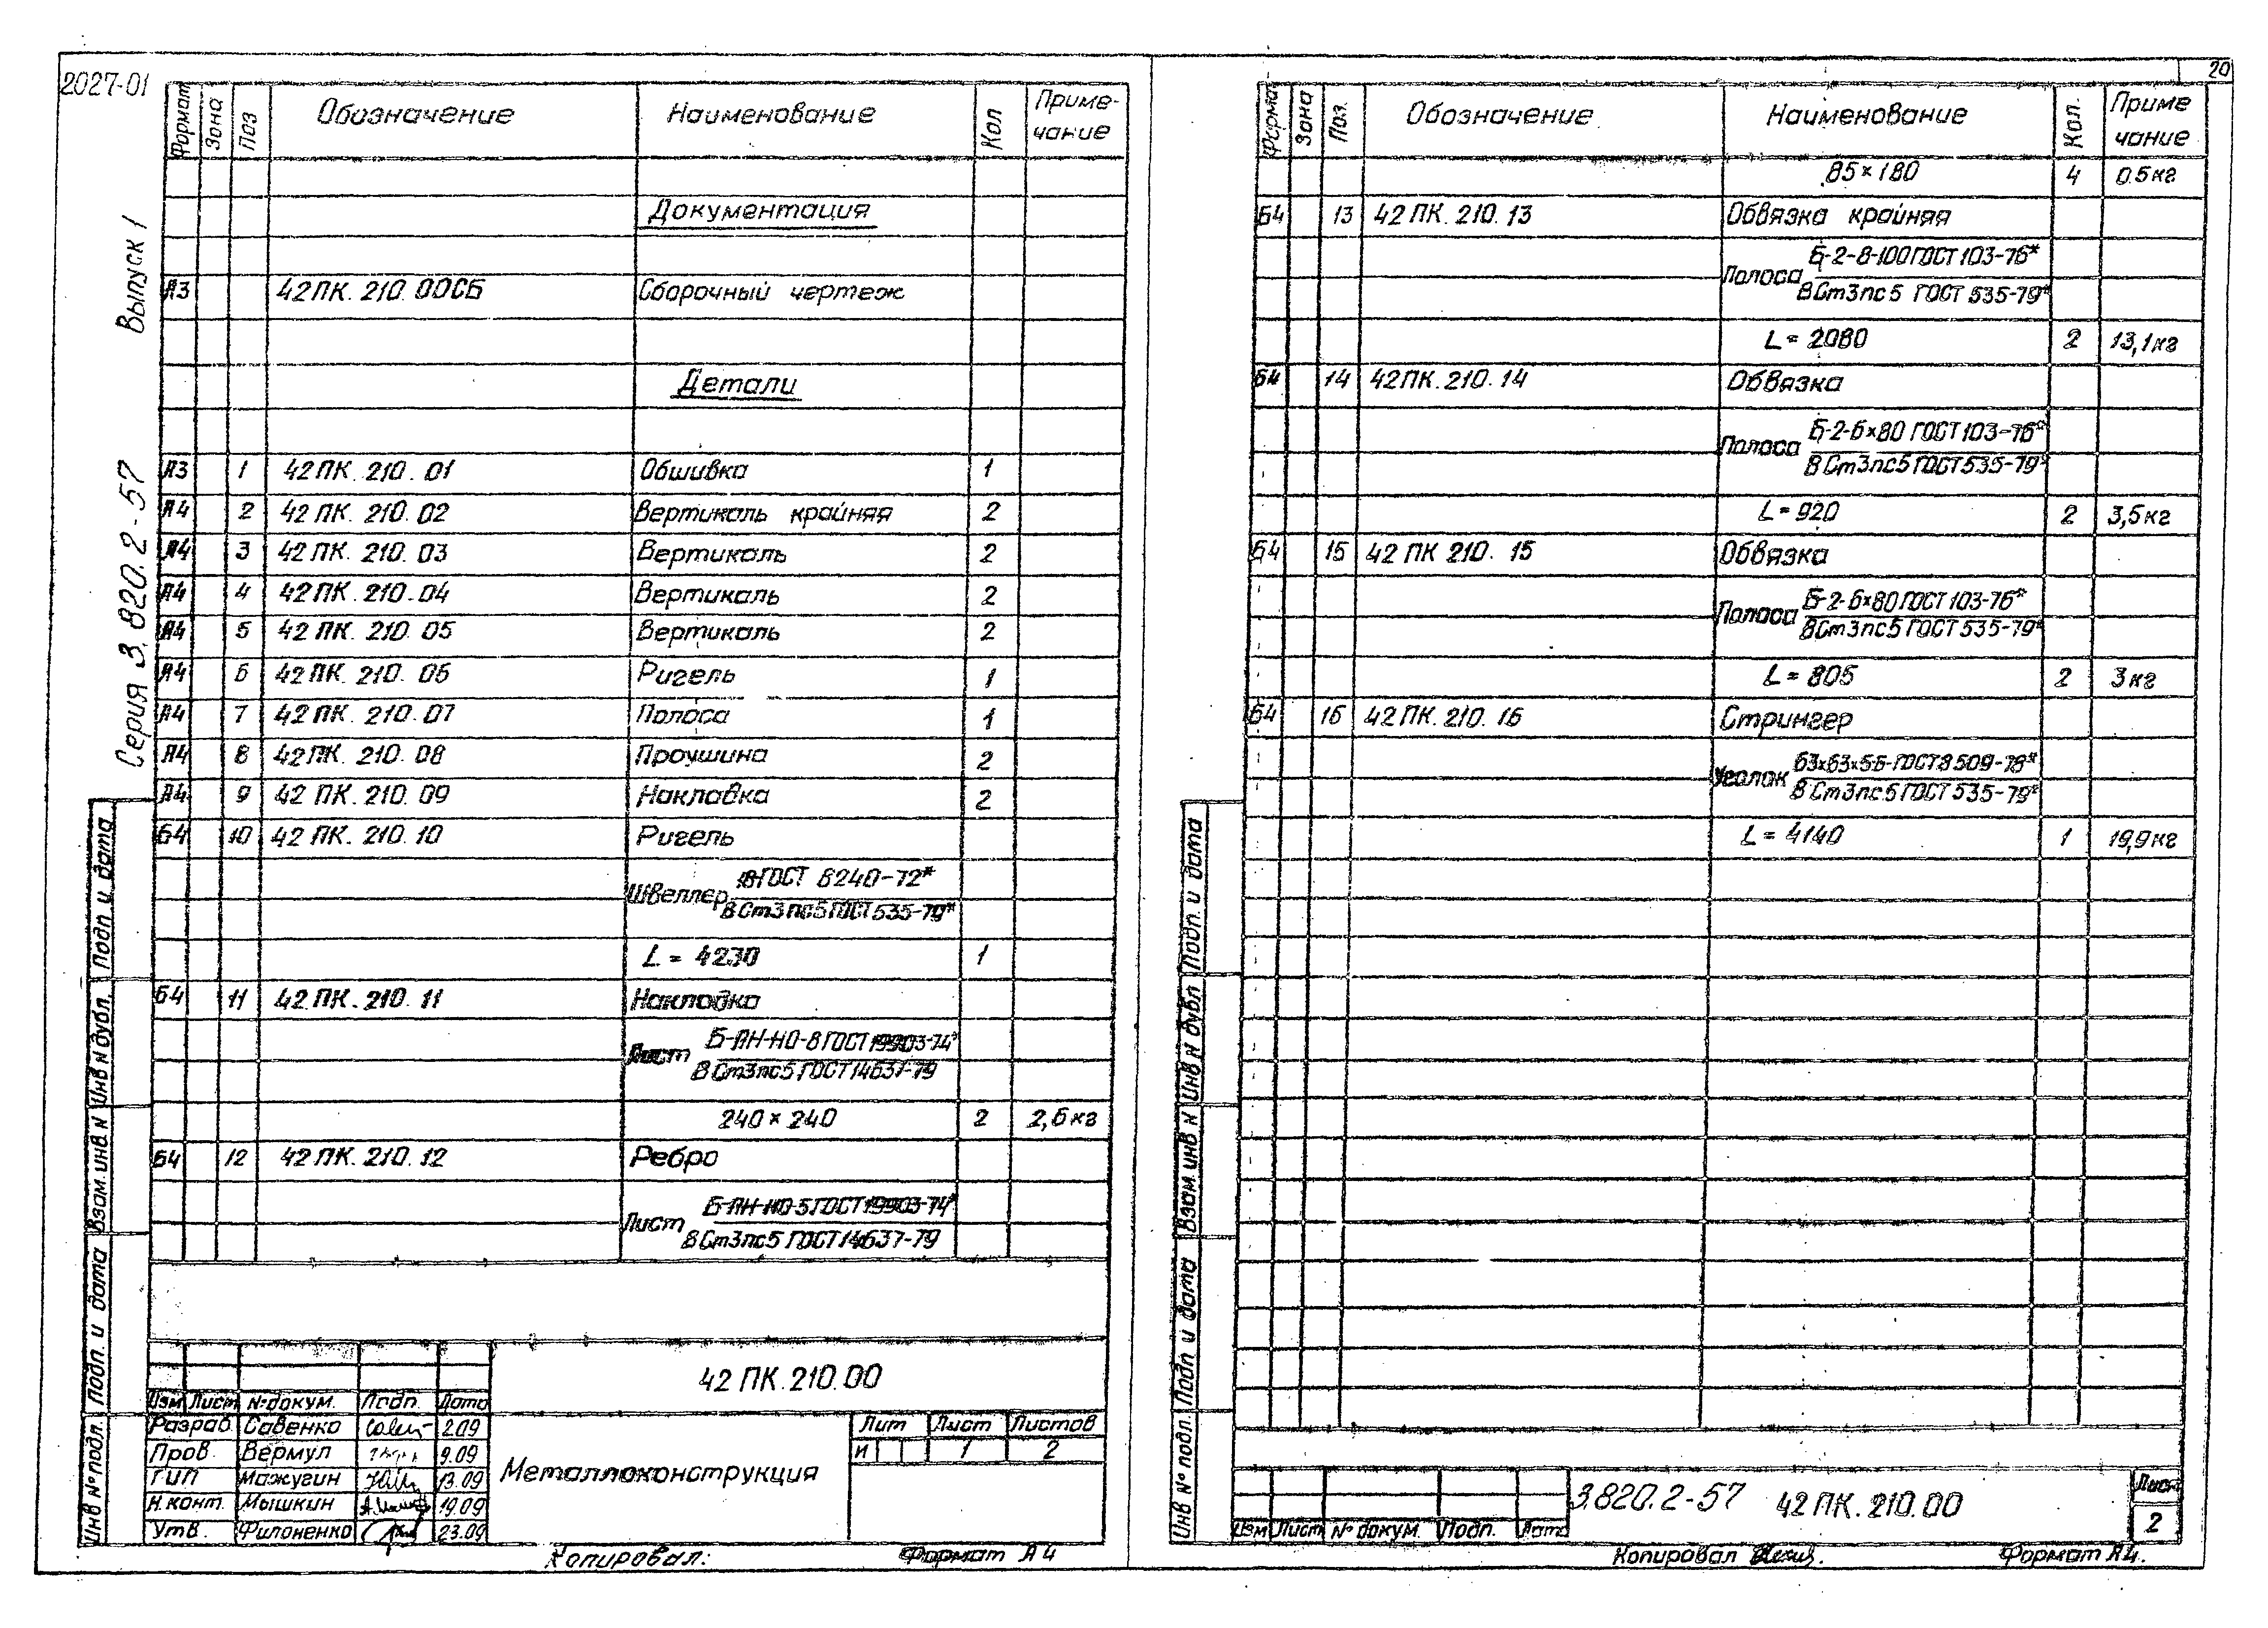 2027-01
Серия 3.820.2-57 Выпуск 1
Формат Зона Поз Обозначение Наименование Кол Приме-чание
Документация
А3 42ПК.210.00СБ Сборочный чертеж
Детали
А3 1 42ПК.210.01 Обшивка 1
А4 2 42ПК.210.02 Вертикаль крайняя 2
А4 3 42ПК.210.03 Вертикаль 2
А4 4 42ПК.210.04 Вертикаль 2
А4 5 42ПК.210.05 Вертикаль 2
А4 6 42ПК.210.06 Ригель 1
А4 7 42ПК.210.07 Полоса 1
А4 8 42ПК.210.08 Проушина 2
А4 9 42ПК.210.09 Накладка 2
Б4 10 42ПК.210.10 Ригель
Швеллер ГОСТ 8240-72*
ВСт3пс5 ГОСТ 535-79*
L = 4230 1
Б4 11 42ПК.210.11 Накладка
Лист Б-ПН-НО-8 ГОСТ 19903-74*
ВСт3пс5 ГОСТ 14637-79
240 × 240 2 2,6кг
Б4 12 42ПК.210.12 Ребро
Лист Б-ПН-НО-5 ГОСТ 19903-74*
ВСт3пс5 ГОСТ 14637-79
Инв № подл. Подп. и дата Взам. инв N Инв N дубл. Подп. и дата
42ПК.210.00
Изм Лист № докум. Подп. Дата
Разраб Савенко 2.09
Пров. Вермул 9.09
ГИП Мажугин 13.09
Н.конт. Мышкин 19.09
Утв. Филоненко 23.09
Металлоконструкция
Лит Лист Листов
И 1 2
Копировал: Формат А4
20
Формат Зона Поз. Обозначение Наименование Кол. Приме чание
85×180 4 0.5кг
Б4 13 42ПК.210.13 Обвязка крайняя
Полоса Б-2-8-100 ГОСТ 103-76*
ВСт3пс5 ГОСТ 535-79*
L = 2080 2 13,1кг
Б4 14 42ПК.210.14 Обвязка
Полоса Б-2-6×80 ГОСТ 103-76*
ВСт3пс5 ГОСТ 535-79*
L = 920 2 3,5кг
Б4 15 42ПК 210.15 Обвязка
Полоса Б-2-6×80 ГОСТ 103-76*
ВСт3пс5 ГОСТ 535-79*
L = 805 2 3кг
Б4 16 42ПК.210.16 Стрингер
Уголок 63×63×5-Б-ГОСТ 8509-76*
ВСт3пс5 ГОСТ 535-79*
L = 4140 1 19,9кг
Инв № подл. Подп и дата Взам. инв N Инв N дубл Подп. и дата
Изм Лист № докум. Подп. Дата
3.820.2-57 42ПК.210.00
Лист
2
Копировал Формат А4.